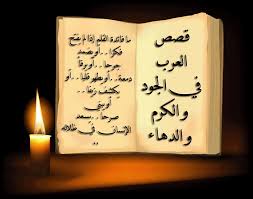 قصص
العرب
في الجود
والكرم
والدهاء
ما فائدة القلم إذا لم يفتح
فكرا.. أو يضمد
جرحا.. أو يرقأ
دمعة.. أو يطهر قلبا.. أو
يكشف زيفا..
أو يبني
صرحا.. يسعد
الإنسان في ظلاله
..